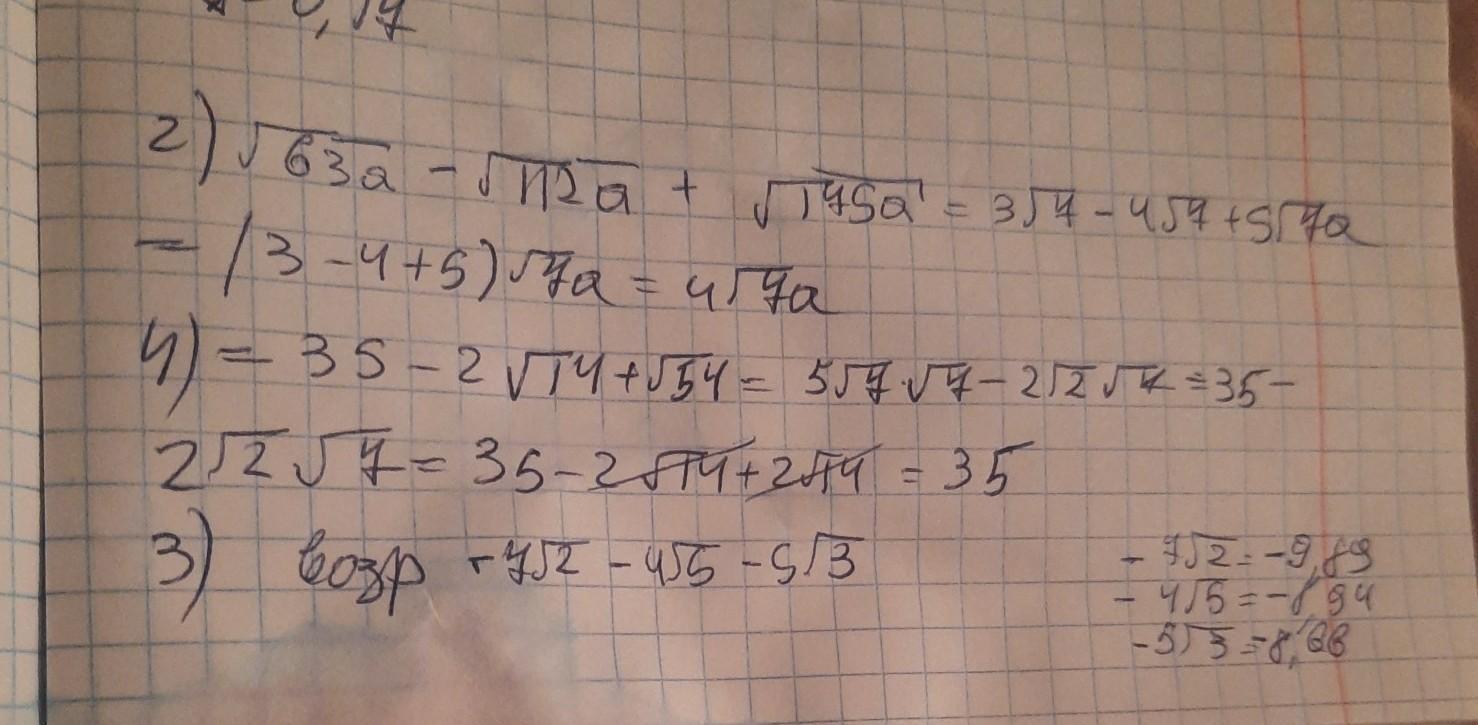 2) √63a - √112a + √175a = 3√7 - 4√7 + 5√7a
= (3 - 4 + 5)√7a = 4√7a
4) = 35 - 2√14 + √54 = 5√7·√7 - 2√2√7 = 35 -
2√2√7 = 35 - 2√14 + 2√14 = 35
3) возр -7√2 - 4√5 - 5√3
- 7√2 = -9,89
- 4√5 = -8,94
-5√3 = 8,66